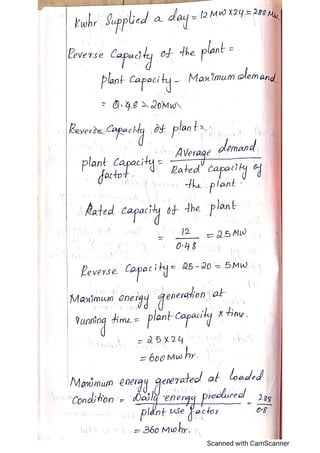 kwhr Supplied a day = 12 MW X24 = 288 MW
Reverse Capacity of the plant =
plant Capacity - Maximum demand
= 0.48 > 20MW
Reverse Capacity of plant =
plant Capacity factor = Average demand / Rated capacity of the plant
Rated capacity of the plant
= 12 / 0.48 = 25 MW
Reverse Capacity = 25 - 20 = 5MW
Maximum energy generation at
running time = plant Capacity x time.
= 25 X 24
= 600 MW hr.
Maximum energy generated at loaded
Condition = Daily energy produced / plant use factor = 288 / 0.8
= 360 MWhr.
Scanned with CamScanner